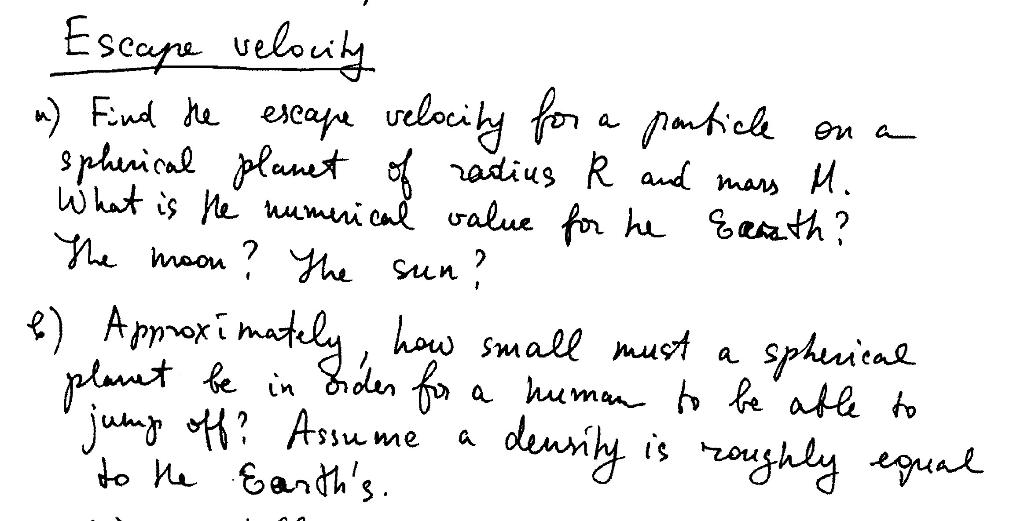 Escape velocity
a) Find the escape velocity for a particle on a
spherical planet of radius R and mass M.
What is the numerical value for he Earth?
The moon? The sun?
b) Approximately, how small must a spherical
planet be in order for a human to be able to
jump off? Assume a density is roughly equal
to the Earth's.